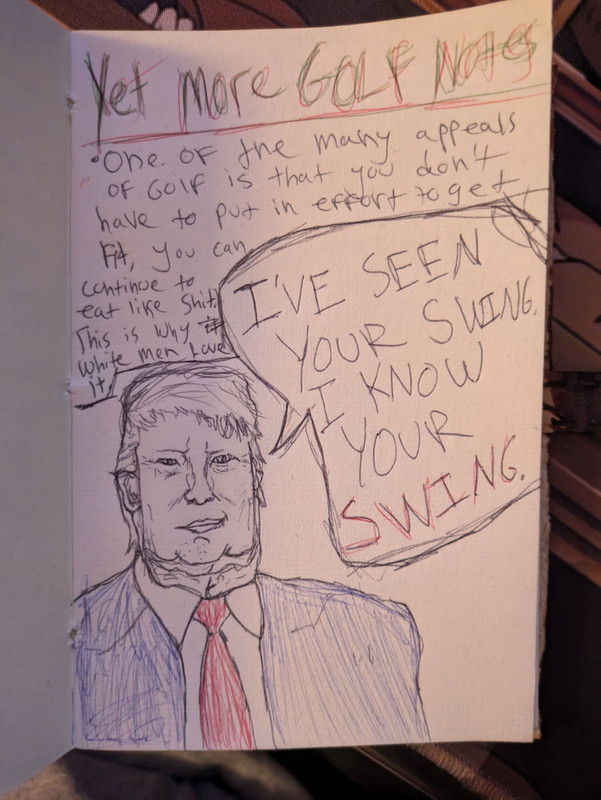 Yet More GOLF Notes
• One OF the many appeals
OF GOLF is that you don't
have to put in effort to get
Fit, you can
continue to
eat like shit.
This is why
white men Love
it!
I'VE SEEN
YOUR SWING.
I KNOW
YOUR
SWING.